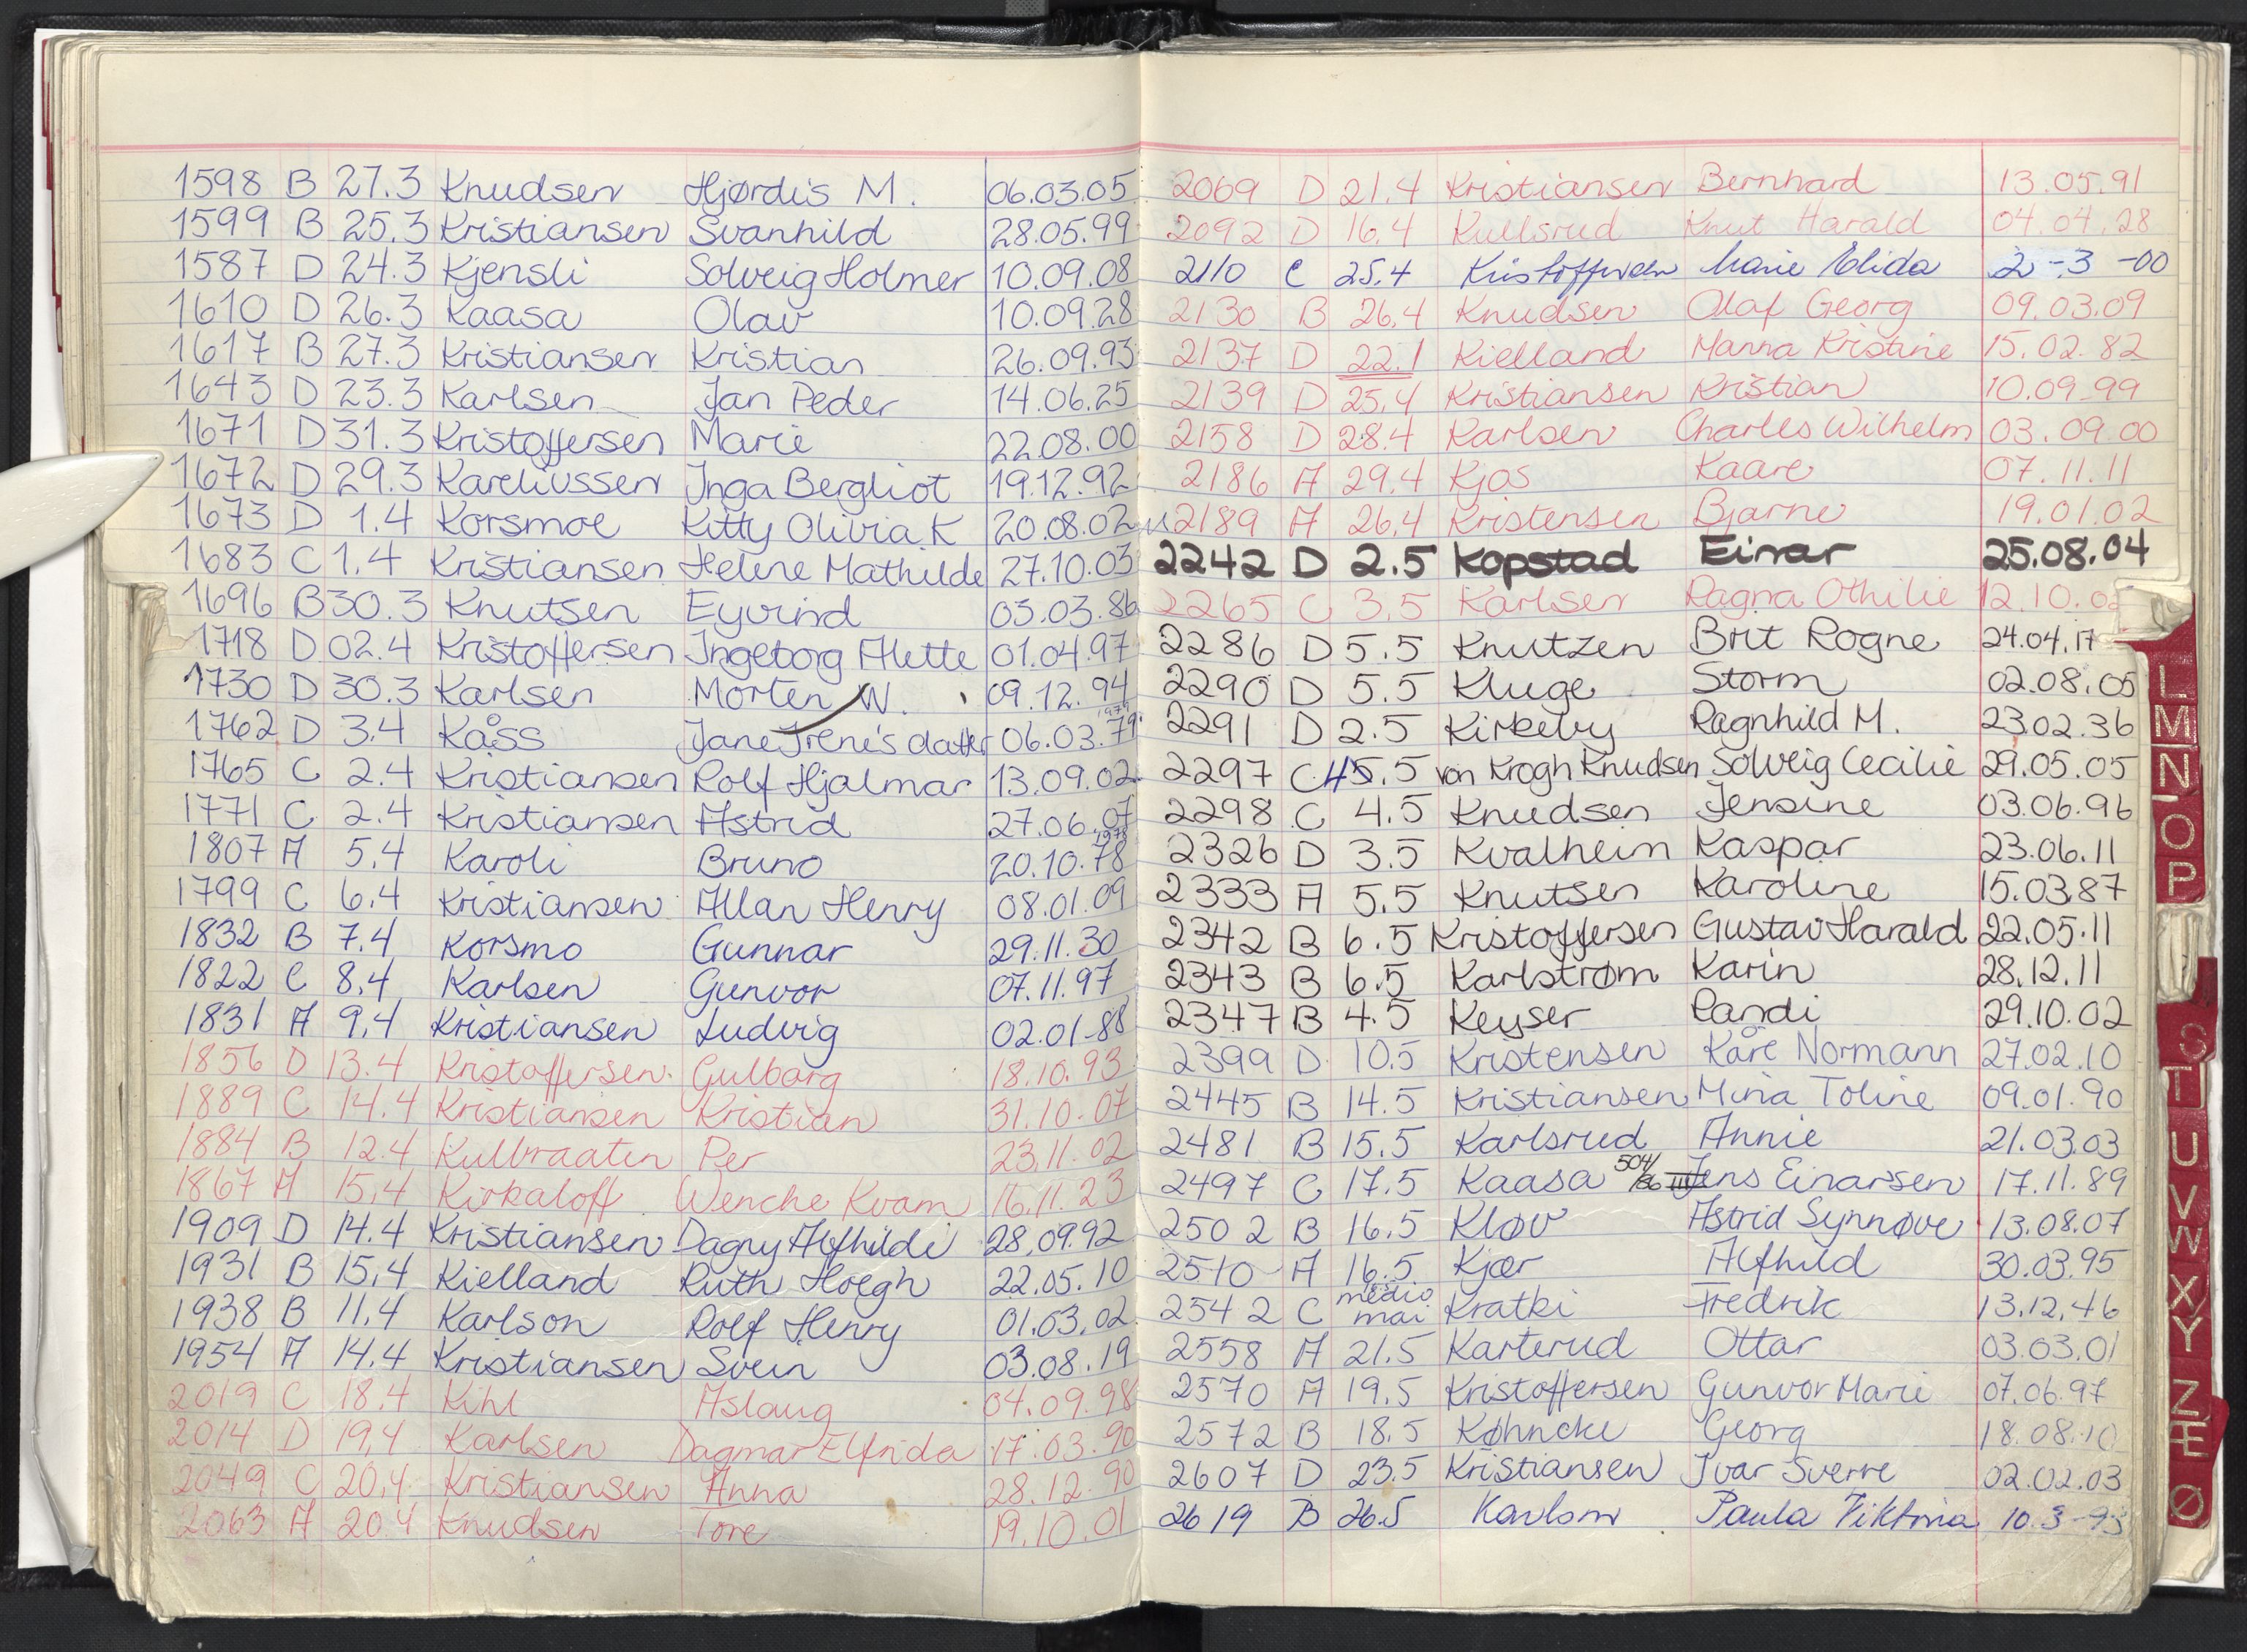 1598 B 27.3 Knudsen Hjørdis M. 06.03.05
1599 B 25.3 Kristiansen Svanhild 28.05.99
1587 D 24.3 Kjensli Solveig Holmer 10.09.08
1610 D 26.3 Kaasa Olav 10.09.28
1617 B 27.3 Kristiansen Kristian 26.09.93
1643 D 23.3 Karlsen Jan Peder 14.06.25
1671 D 31.3 Kristoffersen Marie 22.08.00
1672 D 29.3 Kareliussen Inga Bergliot 19.12.92
1673 D 1.4 Korsmoe Kitty Olivia K 20.08.02
1683 C 1.4 Kristiansen Helene Mathilde 27.10.03
1696 B 30.3 Knutsen Eyvind 03.03.86
1718 D 02.4 Kristoffersen Ingeborg Alette 01.04.97
1730 D 30.3 Karlsen Morten W. 09.12.94
1762 D 3.4 Kåss Jane Irene's datter 06.03.79 1979
1765 C 2.4 Kristiansen Rolf Hjalmar 13.09.02
1771 C 2.4 Kristiansen Astrid 27.06.07
1807 A 5.4 Karoli Bruno 20.10.78 1978
1799 C 6.4 Kristiansen Allan Henry 08.01.09
1832 B 7.4 Korsmo Gunnar 29.11.30
1822 C 8.4 Karlsen Gunvor 07.11.97
1831 A 9.4 Kristiansen Ludvig 02.01-88
1856 D 13.4 Kristoffersen Gulborg 18.10.93
1889 C 14.4 Kristiansen Kristian 31.10.07
1884 B 12.4 Kulbraaten Per 23.11.02
1867 A 15.4 Kirkaloff Wenche Kvam 16.11.23
1909 D 14.4 Kristiansen Dagny Alfhilde 28.09.92
1931 B 15.4 Kielland Ruth Hoegh 22.05.10
1938 B 11.4 Karlson Rolf Henry 01.03.02
1954 A 14.4 Kristiansen Svein 03.08.19
2019 C 18.4 Kihl Aslaug 04.09.98
2014 D 19.4 Karlsen Dagmar Elfrida 17.03.90
2049 C 20.4 Kristiansen Anna 28.12.90
2063 A 20.4 Knudsen Tore 19.10.01
2069 D 21.4 Kristiansen Bernhard 13.05.91
2092 D 16.4 Kullsrud Knut Harald 04.04.28
2110 C 25.4 Kristoffersen Marie Elida 2-3-00
2130 B 26.4 Knudsen Olaf Georg 09.03.09
2137 D 22.1 Kielland Manna Kristine 15.02.82
2139 D 25.4 Kristiansen Kristian 10.09-99
2158 D 28.4 Karlsen Charles Wilhelm 03.09.00
2186 A 29.4 Kjos Kaare 07.11.11
2189 A 26.4 Kristensen Bjarne 19.01.02
2242 D 2.5 Kopstad Einar 25.08.04
2265 C 3.5 Karlsen Ragna Othilie 12.10.
2286 D 5.5 Knutzen Brit Rogne 24.04.17
2290 D 5.5 Kluge Storm 02.08.05
2291 D 2.5 Kirkeby Ragnhild M. 23.02.36
2297 C 5.5 von Krogh Knudsen Solveig Cecilie 29.05.05
2298 C 4.5 Knudsen Jensine 03.06.96
2326 D 3.5 Kvalheim Kaspar 23.06.11
2333 A 5.5 Knutsen Karoline 15.03.87
2342 B 6.5 Kristoffersen Gustav Harald 22.05.11
2343 B 6.5 Karlstrøm Karin 28.12.11
2347 B 4.5 Keyser Randi 29.10.02
2399 D 10.5 Kristensen Kåre Normann 27.02.10
2445 B 14.5 Kristiansen Mina Toline 09.01.90
2481 B 15.5 Karlsrud Annie 21.03.03
2497 C 17.5 Kaasa 504/86 III Jens Einarsen 17.11.89
2502 B 16.5 Kløv Astrid Synnøve 13.08.07
2510 A 16.5 Kjær Alfhild 30.03.95
2542 C medio mai Kratki Fredrik 13.12.46
2558 A 21.5 Karterud Ottar 03.03.01
2570 A 19.5 Kristoffersen Gunvor Marie 07.06.97
2572 B 18.5 Køhncke Georg 18.08.10
2607 D 23.5 Kristiansen Ivar Sverre 02.02.03
2619 B 26.5 Karlsen Paula Viktoria 10.3-93
L
M
N
O
P
S
T
U
V
W
X
Y
Z
Æ
Ø